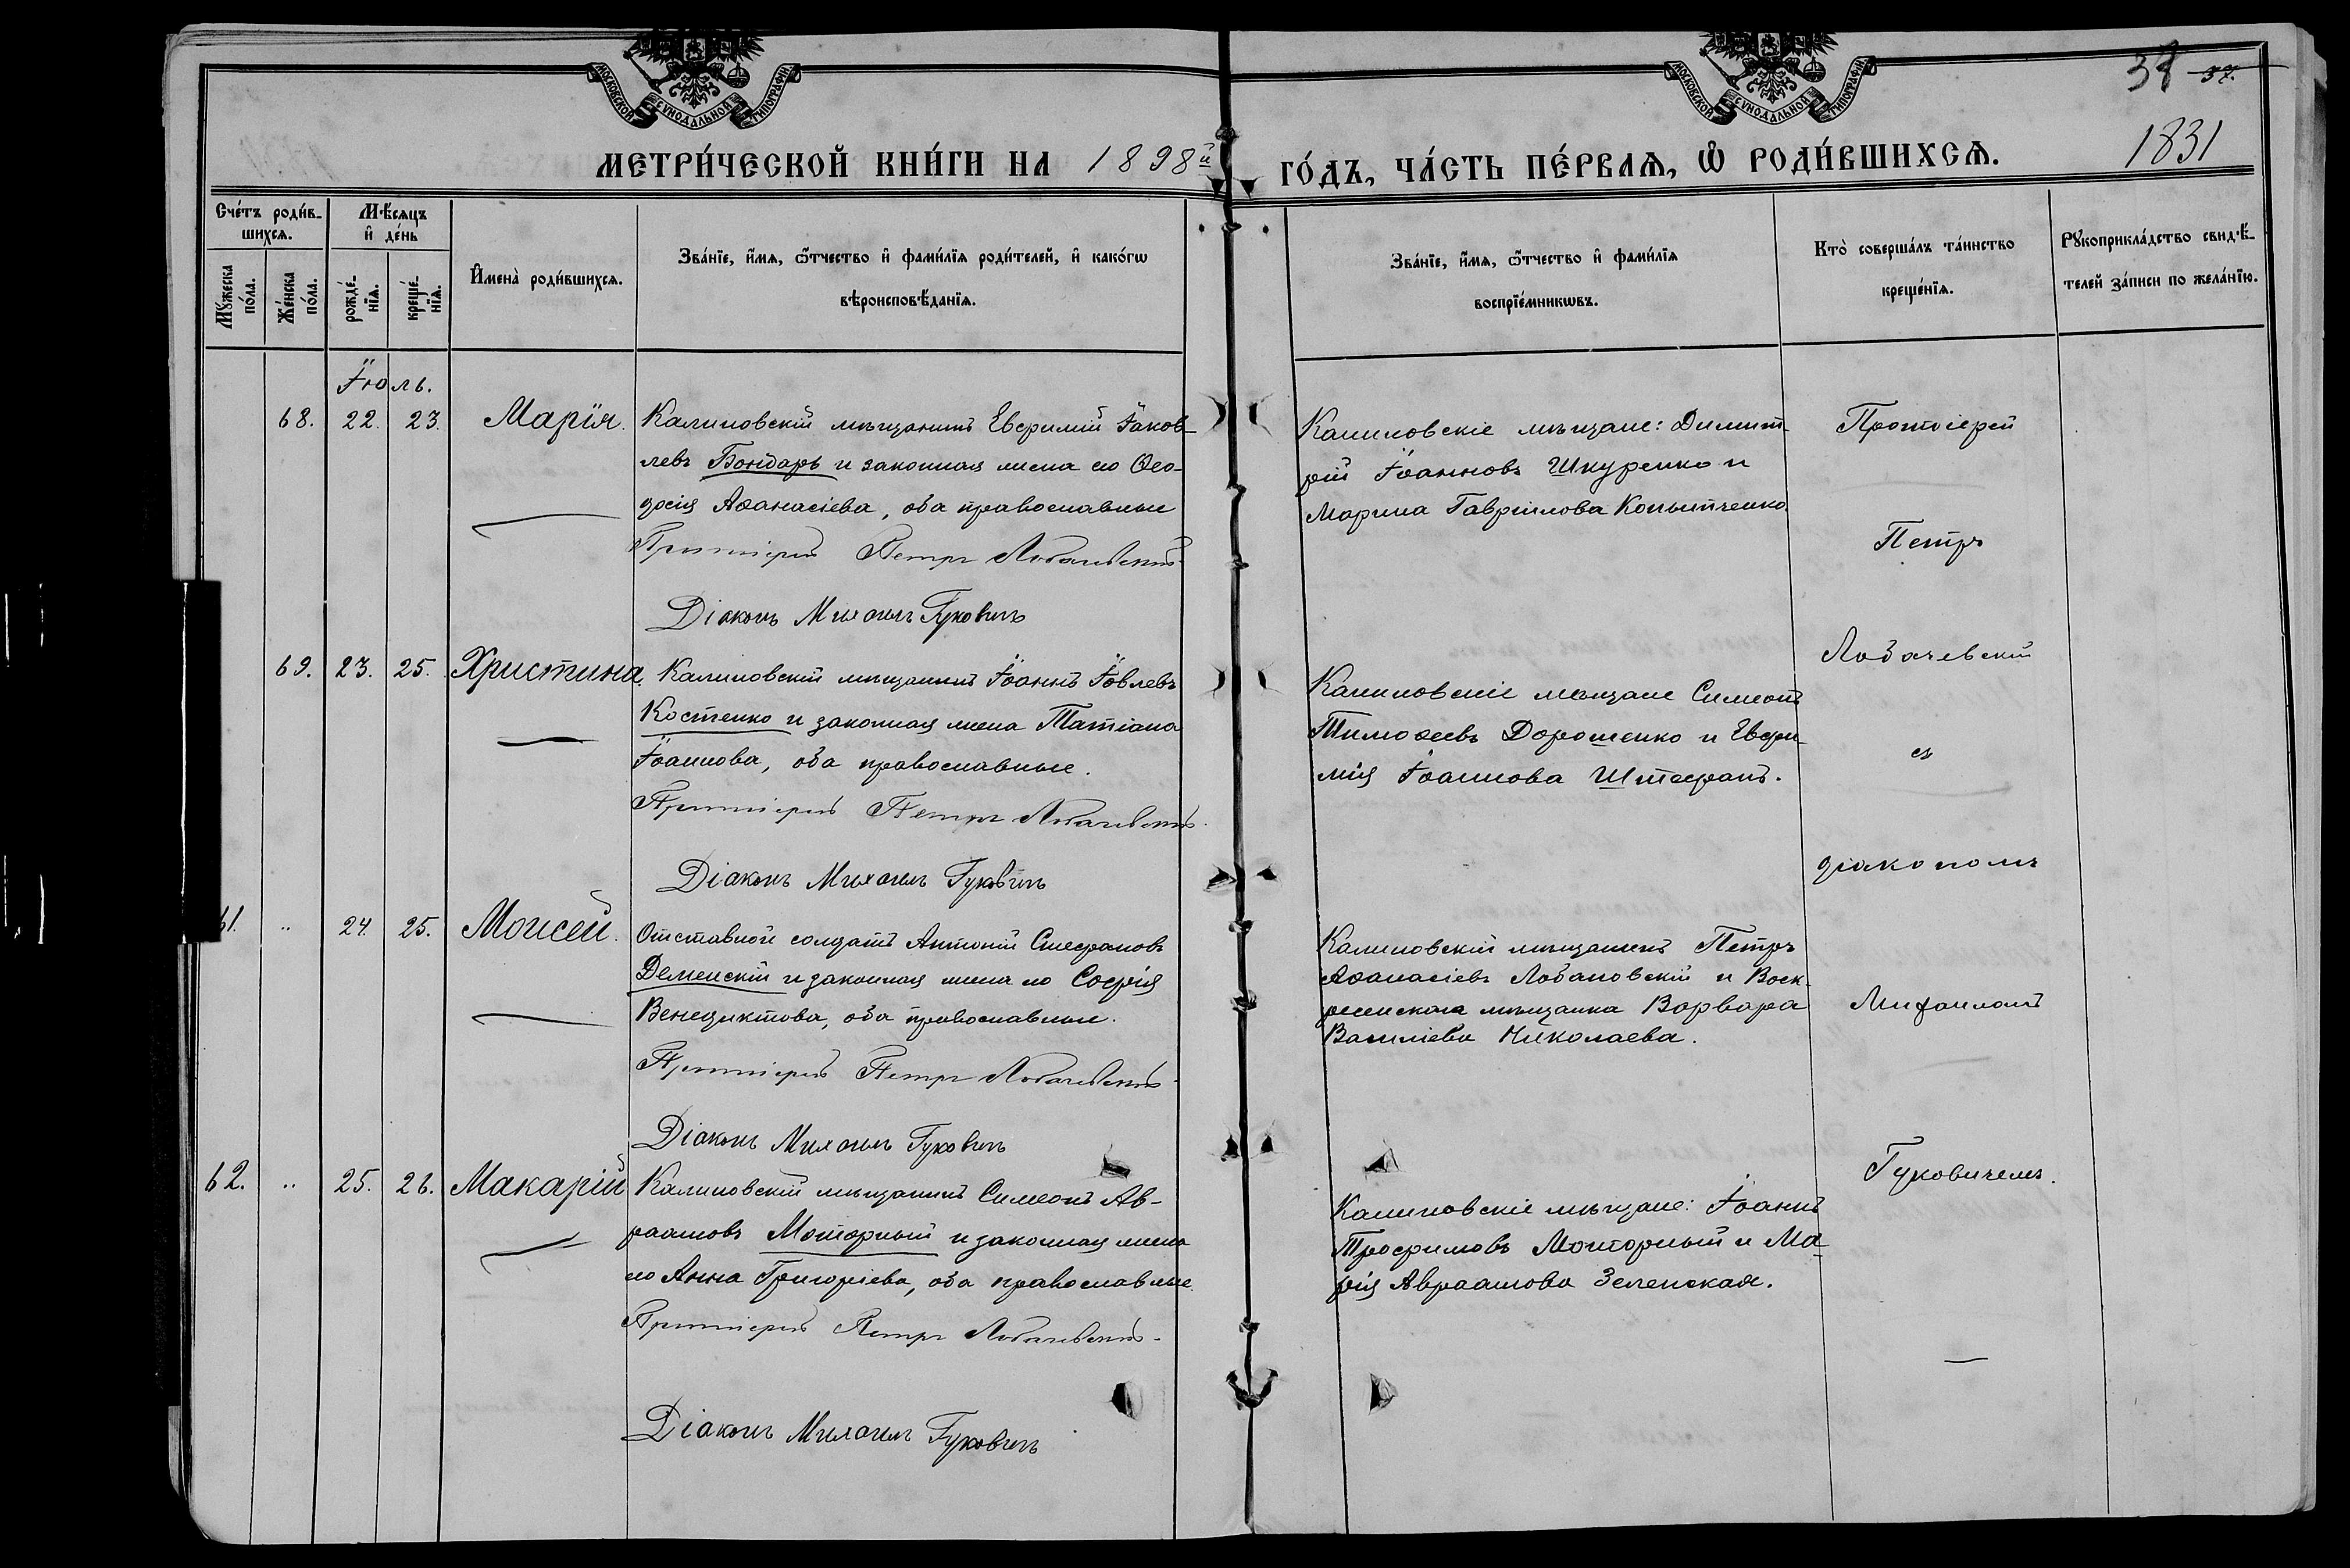 МОСКОВСКОЙ СѴНОДАЛЬНОЙ ТИПОГРАФІИ
МОСКОВСКОЙ СѴНОДАЛЬНОЙ ТИПОГРАФІИ
37.
1831
МЕТРИ́ЧЕСКОЙ КНИ́ГИ НА 1898й
ГО́ДЪ, ЧА́СТЬ ПЕ́РВАѦ, Ѡ҆ РОДИ́ВШИХСѦ.
Сче́тъ роди́в-
шихсѧ.
Мꙋ́жеска по́ла.
Же́нска по́ла.
Мѣ́сѧцъ
и҆ де́нь
рожде́-
нїѧ.
креще́-
нїѧ.
И҆мена̀ роди́вшихсѧ.
Зва́нїе, и҆́мѧ, ѻ҆́тчество и҆ фами́лїѧ роди́телей, и҆ како́гѡ
вѣроисповѣ́данїѧ.
Зва́нїе, и҆́мѧ, ѻ҆́тчество и҆ фами́лїѧ
воспрїе́мникѡвъ.
Кто̀ соверша́лъ та́инство
креще́нїѧ.
Рꙋкоприкла́дство свидѣ́-
телей за́писи по жела́нїю.
Іюль.
68. 22. 23. Марія.
Калиновскій мѣщанинъ Евфимій Іаков-
левъ Бондарь и законная жена его Ѳео-
досія Аѳанасіева, оба православные
Протоіерей Петръ Лобачевскій
Діаконъ Михаилъ Гуковичъ
Калиновскіе мѣщане: Димит-
рій Іоанновъ Шкуренко и
Марина Гавріилова Копытченко
69. 23. 25. Христина.
Калиновскій мѣщанинъ Іоаннъ Іовлевъ
Костенко и законная жена Татіана
Іоаннова, оба православные.
Протоіерей Петръ Лобачевскій.
Діаконъ Михаилъ Гуковичъ
Калиновскіе мѣщане Симеонъ
Тимоѳеевъ Дорошенко и Евфи-
мія Іоаннова Штефанъ.
61. ,, 24. 25. Моисей.
Отставной солдатъ Антоній Стефановъ
Деменскій и законная жена его Софія
Венедиктова, оба православные.
Протоіерей Петръ Лобачевскій
Діаконъ Михаилъ Гуковичъ
Калиновскій мѣщанинъ Петръ
Аѳанасіевъ Лобановскій и Воск-
ресенская мѣщанка Варвара
Василіева Николаева.
62. ,, 25. 26. Макарій
Калиновскій мѣщанинъ Симеонъ Ав-
раамовъ Моторный и законная жена
его Анна Григоріева, оба православные.
Протоіерей Петръ Лобачевскій.
Діаконъ Михаилъ Гуковичъ
Калиновскіе мѣщане: Іоаннъ
Трофимовъ Моторный и Ма-
рія Авраамова Зеленская.
Протоіерей
Петръ
Лобачевскій
съ
діакономъ
Михаиломъ
Гуковичемъ.